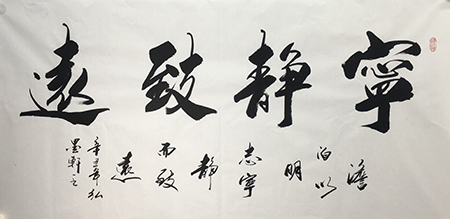 寧静致遠
澹
泊以
明
志寧
静
而致
遠
辛丑年弘
墨軒主